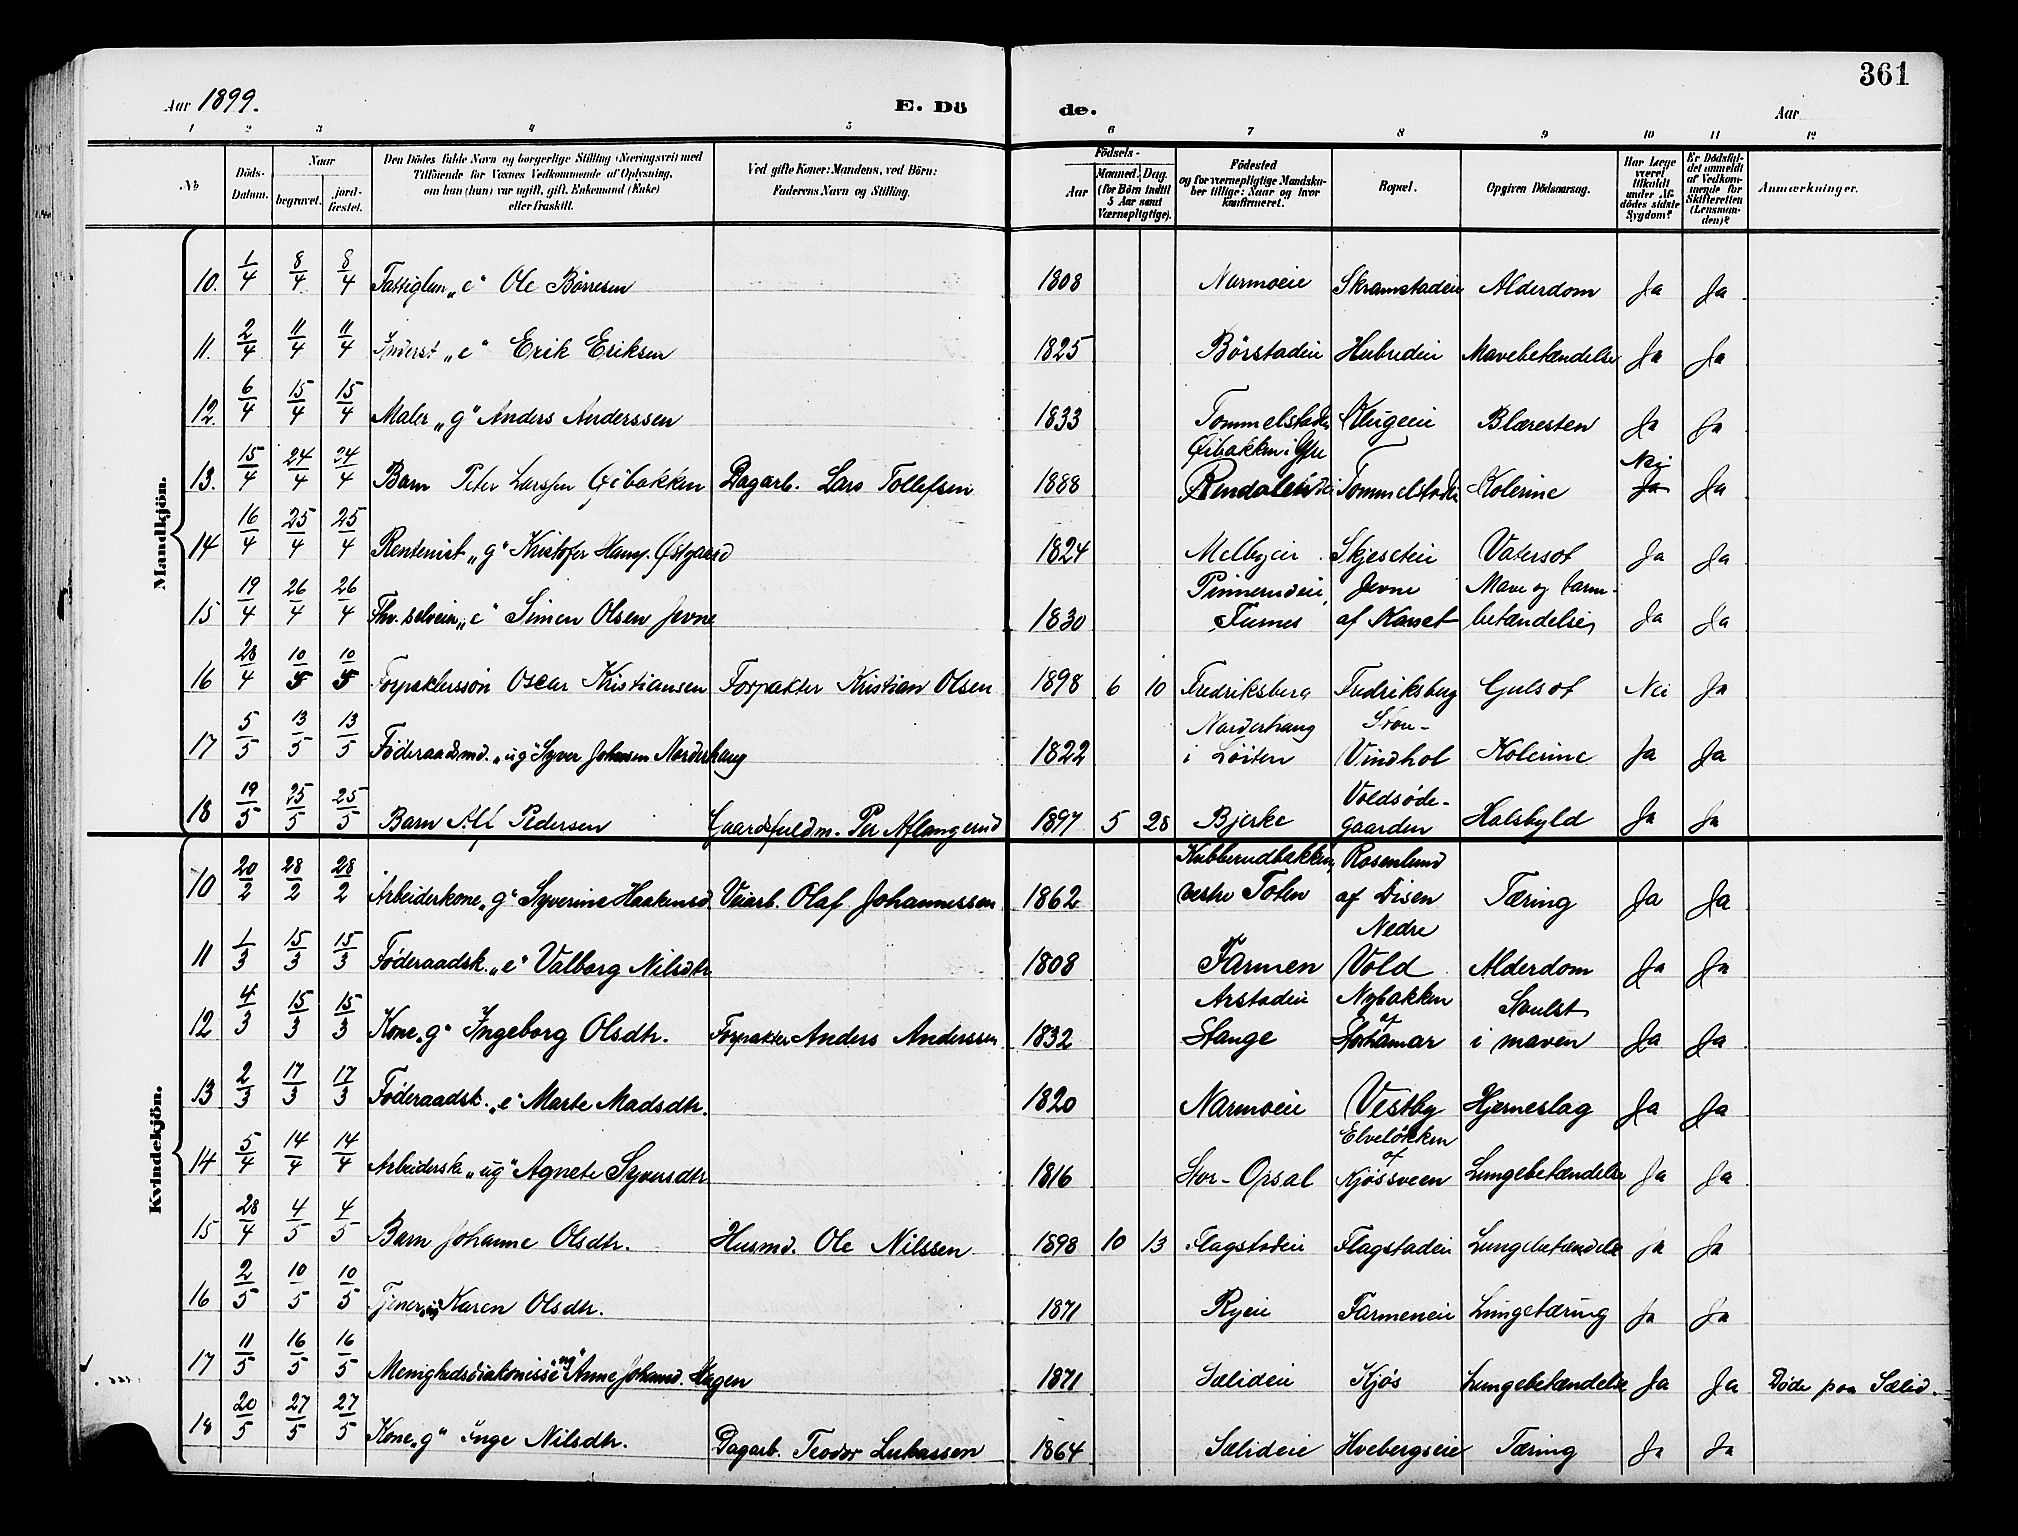 361
Aar 1899. E. Dö de. Aar
1 2 3 4 5 6 7 8 9 10 11 12
No
Döds-Datum.
Naar
begravet.
jord-fæstet.
Den Dödes fulde Navn og borgerlige Stilling (Næringsvei) med
Tilföiende for Voxnes Vedkommende af Oplysning,
om han (hun) var ugift, gift, Enkemand (Enke)
eller fraskilt.
Ved gifte Koner: Mandens, ved Börn:
Faderens Navn og Stilling.
Födsels-
Aar
Maaned. Dag.
(for Börn indtil
5 Aar samt
Værnepligtige).
Födested
og for værnepligtige Mandska-
ber tillige: Naar og hvor
konfirmeret.
Bopæl.
Opgiven Dödsaarsag.
Har Læge
været
tilkaldt
under Af-
dödes sidste
Sygdom?
Er Dödsfal-
det anmeldt
af Vedkom-
mende for
Skifteretten
(Lensman-
den)?
Anmærkninger.
Mandkjön.
10. 1/4 8/4 8/4 Fattiglem „e" Ole Börresen 1808 Narmoeie Skramstadeie Alderdom Ja Ja
11. 2/4 11/4 11/4 Inderst „e" Erik Eriksen 1825 Börstadeie Hubredeie Mavebetændelse Ja Ja
12. 6/4 15/4 15/4 Maler „g" Anders Anderssen 1833 Tommelstadeie Klugeeie Blæresten Ja Ja
13. 15/4 24/4 24/4 Barn Peter Larssen Öibakken Dagarb. Lars Tollefsen 1888 Öibakken i Yttre Rendalen Tommelstadeie Kolerine Nei Ja Ja
14 16/4 25/4 25/4 Rentenist „g" Kristofer Hansen Östgaard 1824 Melbyeie Skjeseteie Vatersot Ja Ja
15 19/4 26/4 26/4 Fhv. selveier „e" Simen Olsen Jevne 1830 Pinnerudeie, Furnes Jevne af Kaaret Mave og tarm-betændelse, Ja Ja
16 28/4 10/5 10/5 Forpaktersson Oscar Kristiansen Forpakter Kristian Olsen 1898 6 10 Fredriksberg Fredriksberg Gulsot Nei Ja
17 5/5 13/5 13/5 Föderaadsmd. „ug" Syver Johansen Norderhaug 1822 Norderhaug i Löiten Store-Vindhol Kolerine Ja Ja
18 19/5 25/5 25/5 Barn Alf Pedersen Gaardsfuldm. Per Aflangerud 1897 5 28 Bjerke Voldsöde-gaarden Halsbyld Ja Ja
Kvindekjön.
10 20/2 28/2 28/2 Arbeiderkone „g" Syverine Haakensd. Veiarb. Olaf Johannessen 1862 Kubberudbakken, vestre Toten Rosenlund af Disen Tæring Ja Ja
11 1/3 15/3 15/3 Föderaadsk. „e" Valborg Nilsdtr. 1808 Farmen Nedre Vold Alderdom Ja Ja
12 4/3 15/3 15/3 Kone „g" Ingeborg Olsdtr. Forpakter Anders Anderssen 1832 Arstadeie Stange Nybakken af Storhamar Svulst i maven Ja Ja
13 2/3 17/3 17/3 Föderaadsk. „e" Marte Madsdtr. 1820 Narmoeie Vestby Hjerneslag Ja Ja
14 5/4 14/4 14/4 Arbeiderske „ug" Agnete Syversdtr 1816 Stor-Opsal Elvelökken af Kjösveen Lungebetændelse Ja Ja
15 28/4 4/5 4/5 Barn Johanne Olsdtr. Husmd. Ole Nilssen 1898 10 13 Flagstadeie Flagstadeie Lungebetændelse Ja Ja
16 2/5 10/5 10/5 Tjener „ug" Karen Olsdtr. 1871 Ryeie Farmeneie Lungetæring Ja Ja
17 11/5 16/5 16/5 Menighedsdiakonisse „ug" Anne Johansd. Hagen 1871 Sælideie Kjös Lungebetændelse Ja Ja Döde paa Sælid.
18 20/5 27/5 27/5 Kone „g" Inge Nilsdtr. Dagarb. Teodor Lukassen 1864 Sælideie Hvebergseie Tæring Ja Ja